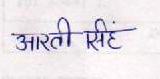 आरती सिंहं